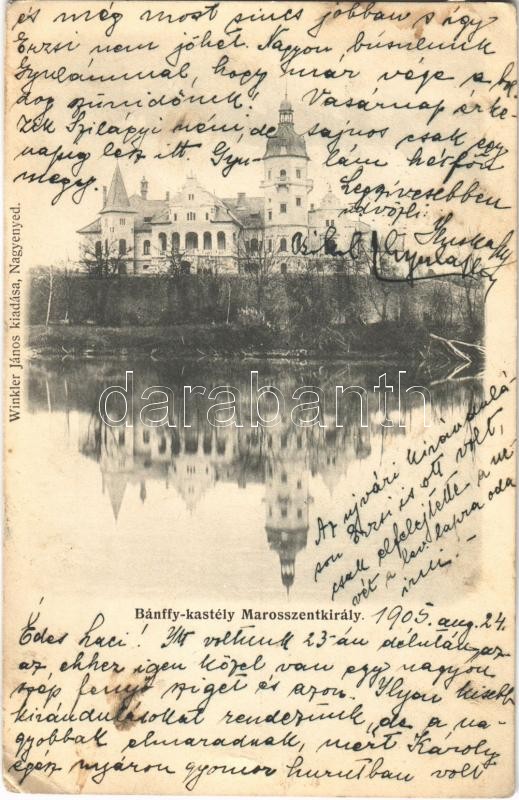 és még most sincs jobban s így
Erzsi nem jöhet. Nagyon búsulunk
Gyulámmal, hogy már vége a bol
dog szünidőnek! Vasárnap érke
zik Szilágyi néni, de sajnos csak egy
napig lesz itt. Gyu- lám hétfőn
megy.
Legszívesebben
üdvözli:
Winkler János kiadása, Nagyenyed.
darabanth.com
Az ujvári kiránduló
son Erzsi is ott volt,
csak elfelejtette a ne
vét a lev. lapra oda
irni. -
Bánffy-kastély Marosszentkirály. 1905. aug. 24.
Édes Laci! Itt voltunk 23-án délután, az
az ehhez igen közel van egy nagyon
szép fenyő sziget és azon. Ilyen kisebb
kirándulásokat rendezünk, de a na
gyobbak elmaradnak, mert Károly
egész nyáron gyomor hurutban volt